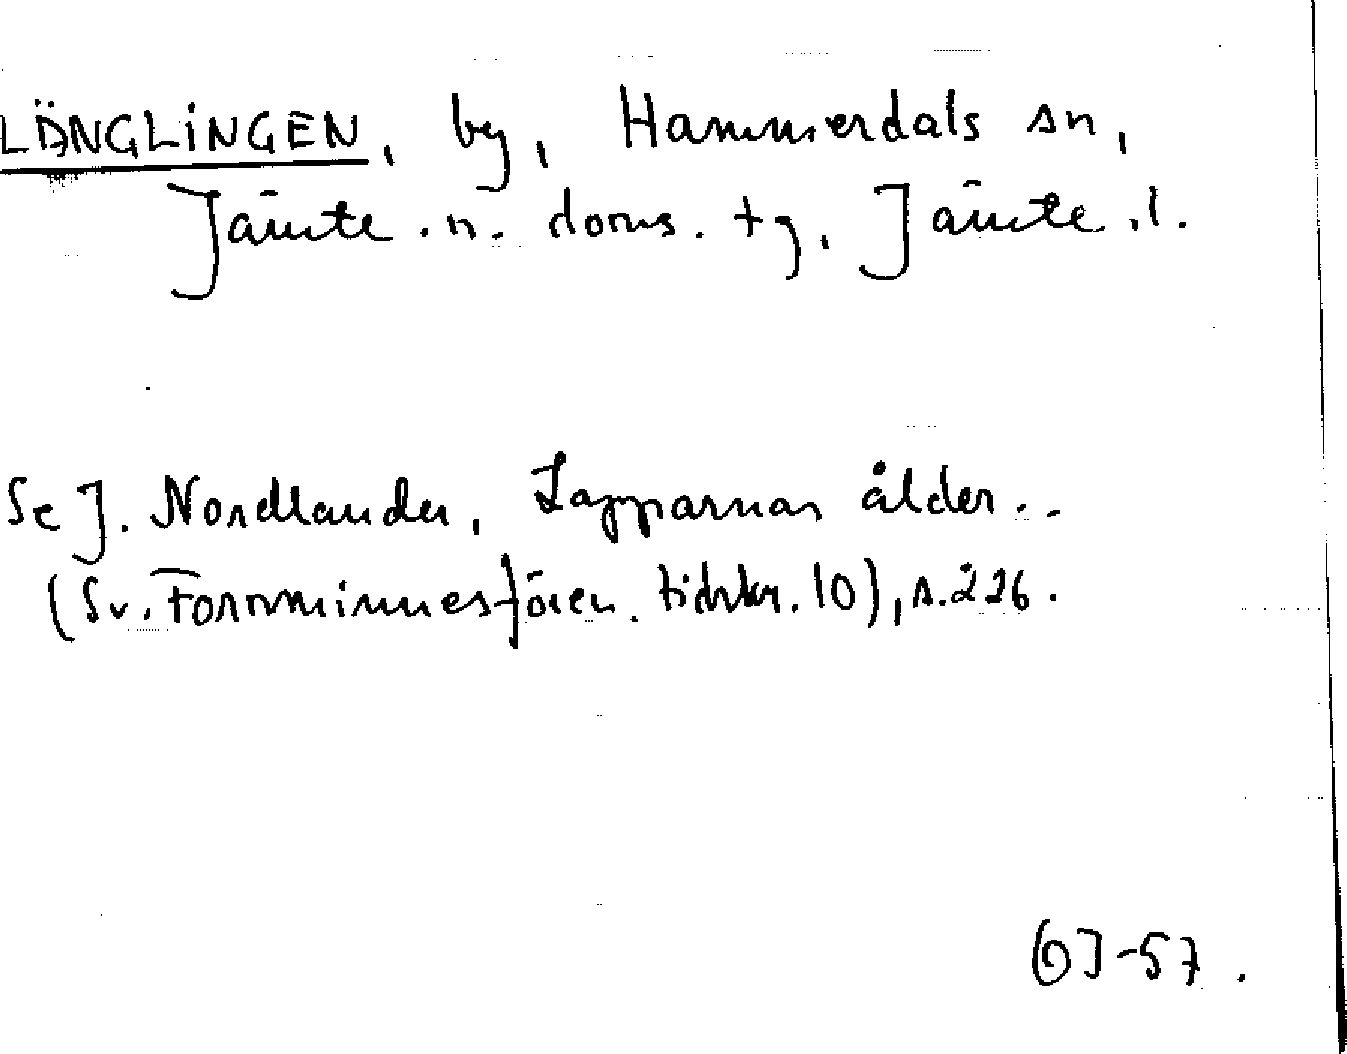 LÄNGLINGEN, by, Hammerdals sn,
Jämte. n. doms. tg, Jämte.l.
Se J. Nordlander, Lapparnas ålder..
(Sv. Fornminnesfören. tidskr. 10), s. 226.
OJ-57.